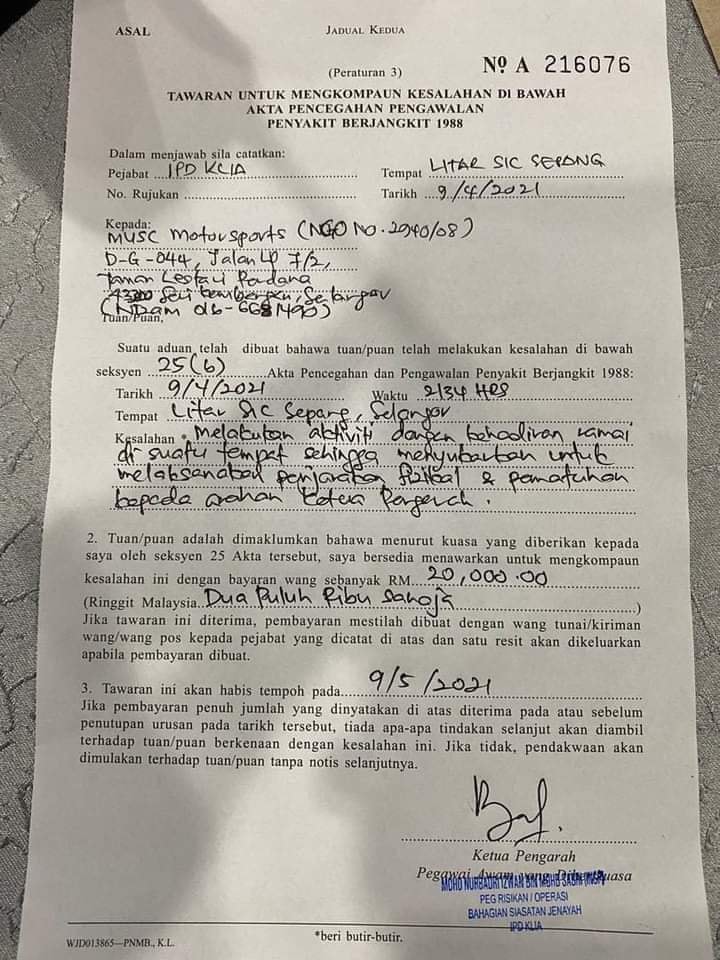 ASAL
JADUAL KEDUA
(Peraturan 3)
No A 216076
TAWARAN UNTUK MENGKOMPAUN KESALAHAN DI BAWAH
AKTA PENCEGAHAN PENGAWALAN
PENYAKIT BERJANGKIT 1988
Dalam menjawab sila catatkan:
Pejabat IPD KLIA
Tempat LITAR SIC SEPANG
No. Rujukan
Tarikh 9/4/2021
Kepada:
MUSC Motorsports (NGO No. 2940/08)
D-G-044, Jalan LP 7/2,
Taman Lestari Perdana
43300 Seri Kembangan, Selangor
Tuan/Puan,
Suatu aduan telah dibuat bahawa tuan/puan telah melakukan kesalahan di bawah
seksyen 25(b) Akta Pencegahan dan Pengawalan Penyakit Berjangkit 1988:
Tarikh 9/4/2021 Waktu 2134 HRS
Tempat Litar SIC Sepang, Selangor
Kesalahan * Melakukan aktiviti dengan kehadiran ramai
di suatu tempat sehingga menyukarkan untuk
melaksanakan penjarakan fizikal & pematuhan
kepada arahan Ketua Pengarah.
2. Tuan/puan adalah dimaklumkan bahawa menurut kuasa yang diberikan kepada
saya oleh seksyen 25 Akta tersebut, saya bersedia menawarkan untuk mengkompaun
kesalahan ini dengan bayaran wang sebanyak RM 20,000.00
(Ringgit Malaysia Dua Puluh Ribu Sahaja)
Jika tawaran ini diterima, pembayaran mestilah dibuat dengan wang tunai/kiriman
wang/wang pos kepada pejabat yang dicatat di atas dan satu resit akan dikeluarkan
apabila pembayaran dibuat.
3. Tawaran ini akan habis tempoh pada 9/5/2021
Jika pembayaran penuh jumlah yang dinyatakan di atas diterima pada atau sebelum
penutupan urusan pada tarikh tersebut, tiada apa-apa tindakan selanjut akan diambil
terhadap tuan/puan berkenaan dengan kesalahan ini. Jika tidak, pendakwaan akan
dimulakan terhadap tuan/puan tanpa notis selanjutnya.
Ketua Pengarah
Pegawai Awam yang Diberi Kuasa
MOHD NURBADRI IZWAN BIN MOHD
PEG RISIKAN / OPERASI
BAHAGIAN SIASATAN JENAYAH
IPD KLIA
*beri butir-butir.
WJD013865—PNMB., K.L.